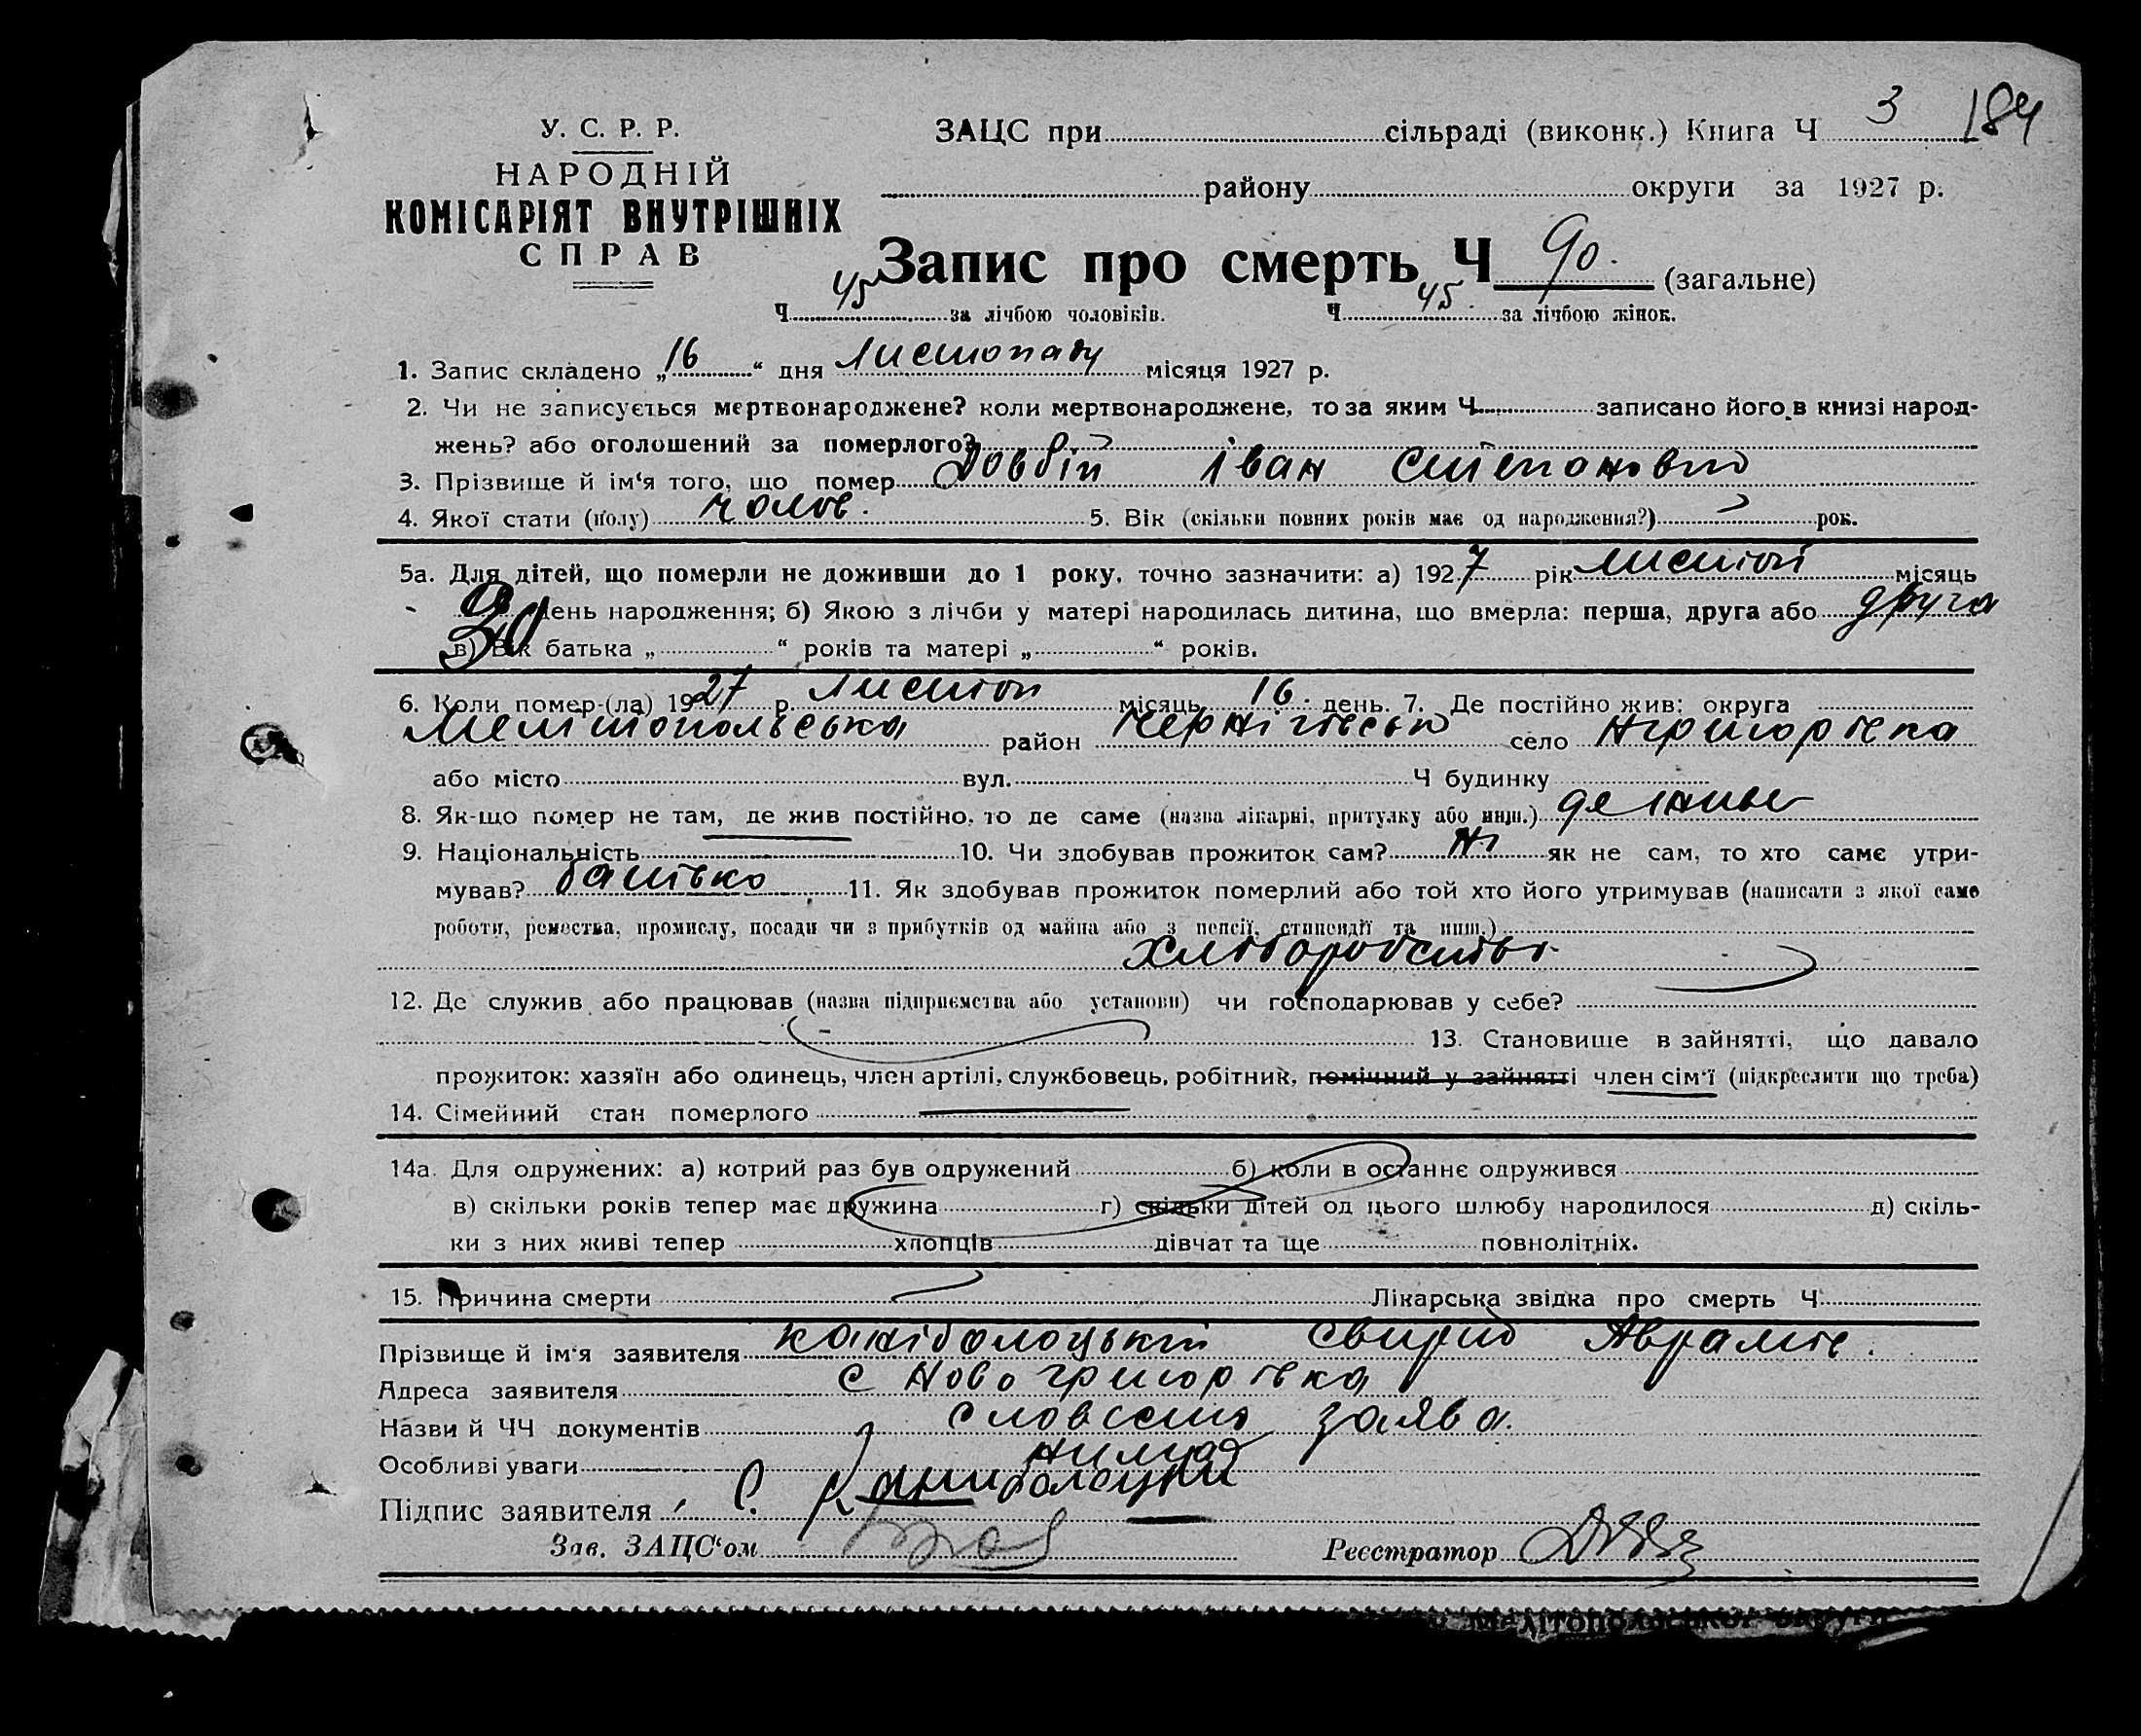 У. С. Р. Р.
НАРОДНІЙ
КОМІСАРІЯТ ВНУТРІШНІХ
СПРАВ
ЗАЦС при сільраді (виконк.) Книга Ч 3 184
району округи за 1927 р.
Запис про смерть Ч 90. (загальне)
Ч 45 за лічбою чоловіків. Ч 45 за лічбою жінок.
1. Запис складено „16“ дня Листопаду місяця 1927 р.
2. Чи не записується мертвонароджене? коли мертвонароджене, то за яким Ч. записано його в книзі народ-
жень? або оголошений за померлого?
3. Прізвище й ім‘я того, що помер Довбій Іван Степанович
4. Якої стати (полу) чолов. 5. Вік (скільки повних років має од народження?) рок.
5а. Для дітей, що померли не доживши до 1 року, точно зазначити: а) 1927 рік листоп місяць
день народження; б) Якою з лічби у матері народилась дитина, що вмерла: перша, друга або друга
в) Вік батька „ “ років та матері „ “ років.
6. Коли помер-(ла) 1927 р. листоп місяць 16 день. 7. Де постійно жив: округа
Мелітопольська район Чернігівськ село
або місто вул. Ч будинку
8. Як-що помер не там, де жив постійно, то де саме (назва лікарні, притулку або инш.) де живе
9. Національність 10. Чи здобував прожиток сам? ні як не сам, то хто саме утри-
мував? батько 11. Як здобував прожиток померлий або той хто його утримував (написати з якої саме
роботи, ремества, промислу, посади чи з прибутків од майна або з пенсії, стипендії та инш.)
хліборобство
12. Де служив або працював (назва підприємства або установи) чи господарював у себе?
13. Становище в зайнятті, що давало
прожиток: хазяїн або одинець, член артілі, службовець, робітник, помічний у зайнятті член сім‘ї (підкреслити що треба)
14. Сімейний стан померлого
14а. Для одружених: а) котрий раз був одружений б) коли в останнє одружився
в) скільки років тепер має дружина г) скільки дітей од цього шлюбу народилося д) скіль-
ки з них живі тепер хлопців дівчат та ще повнолітніх.
15. Причина смерти Лікарська звідка про смерть Ч
Прізвище й ім‘я заявителя Каніболоцький Свирид Аврамів.
Адреса заявителя с Ново григорівка
Назви й ЧЧ документів словесна заява.
Особливі уваги нимає
Підпис заявителя С. Каниболецкий
Зав. ЗАЦС‘ом Реєстратор
Мелітопольської округи